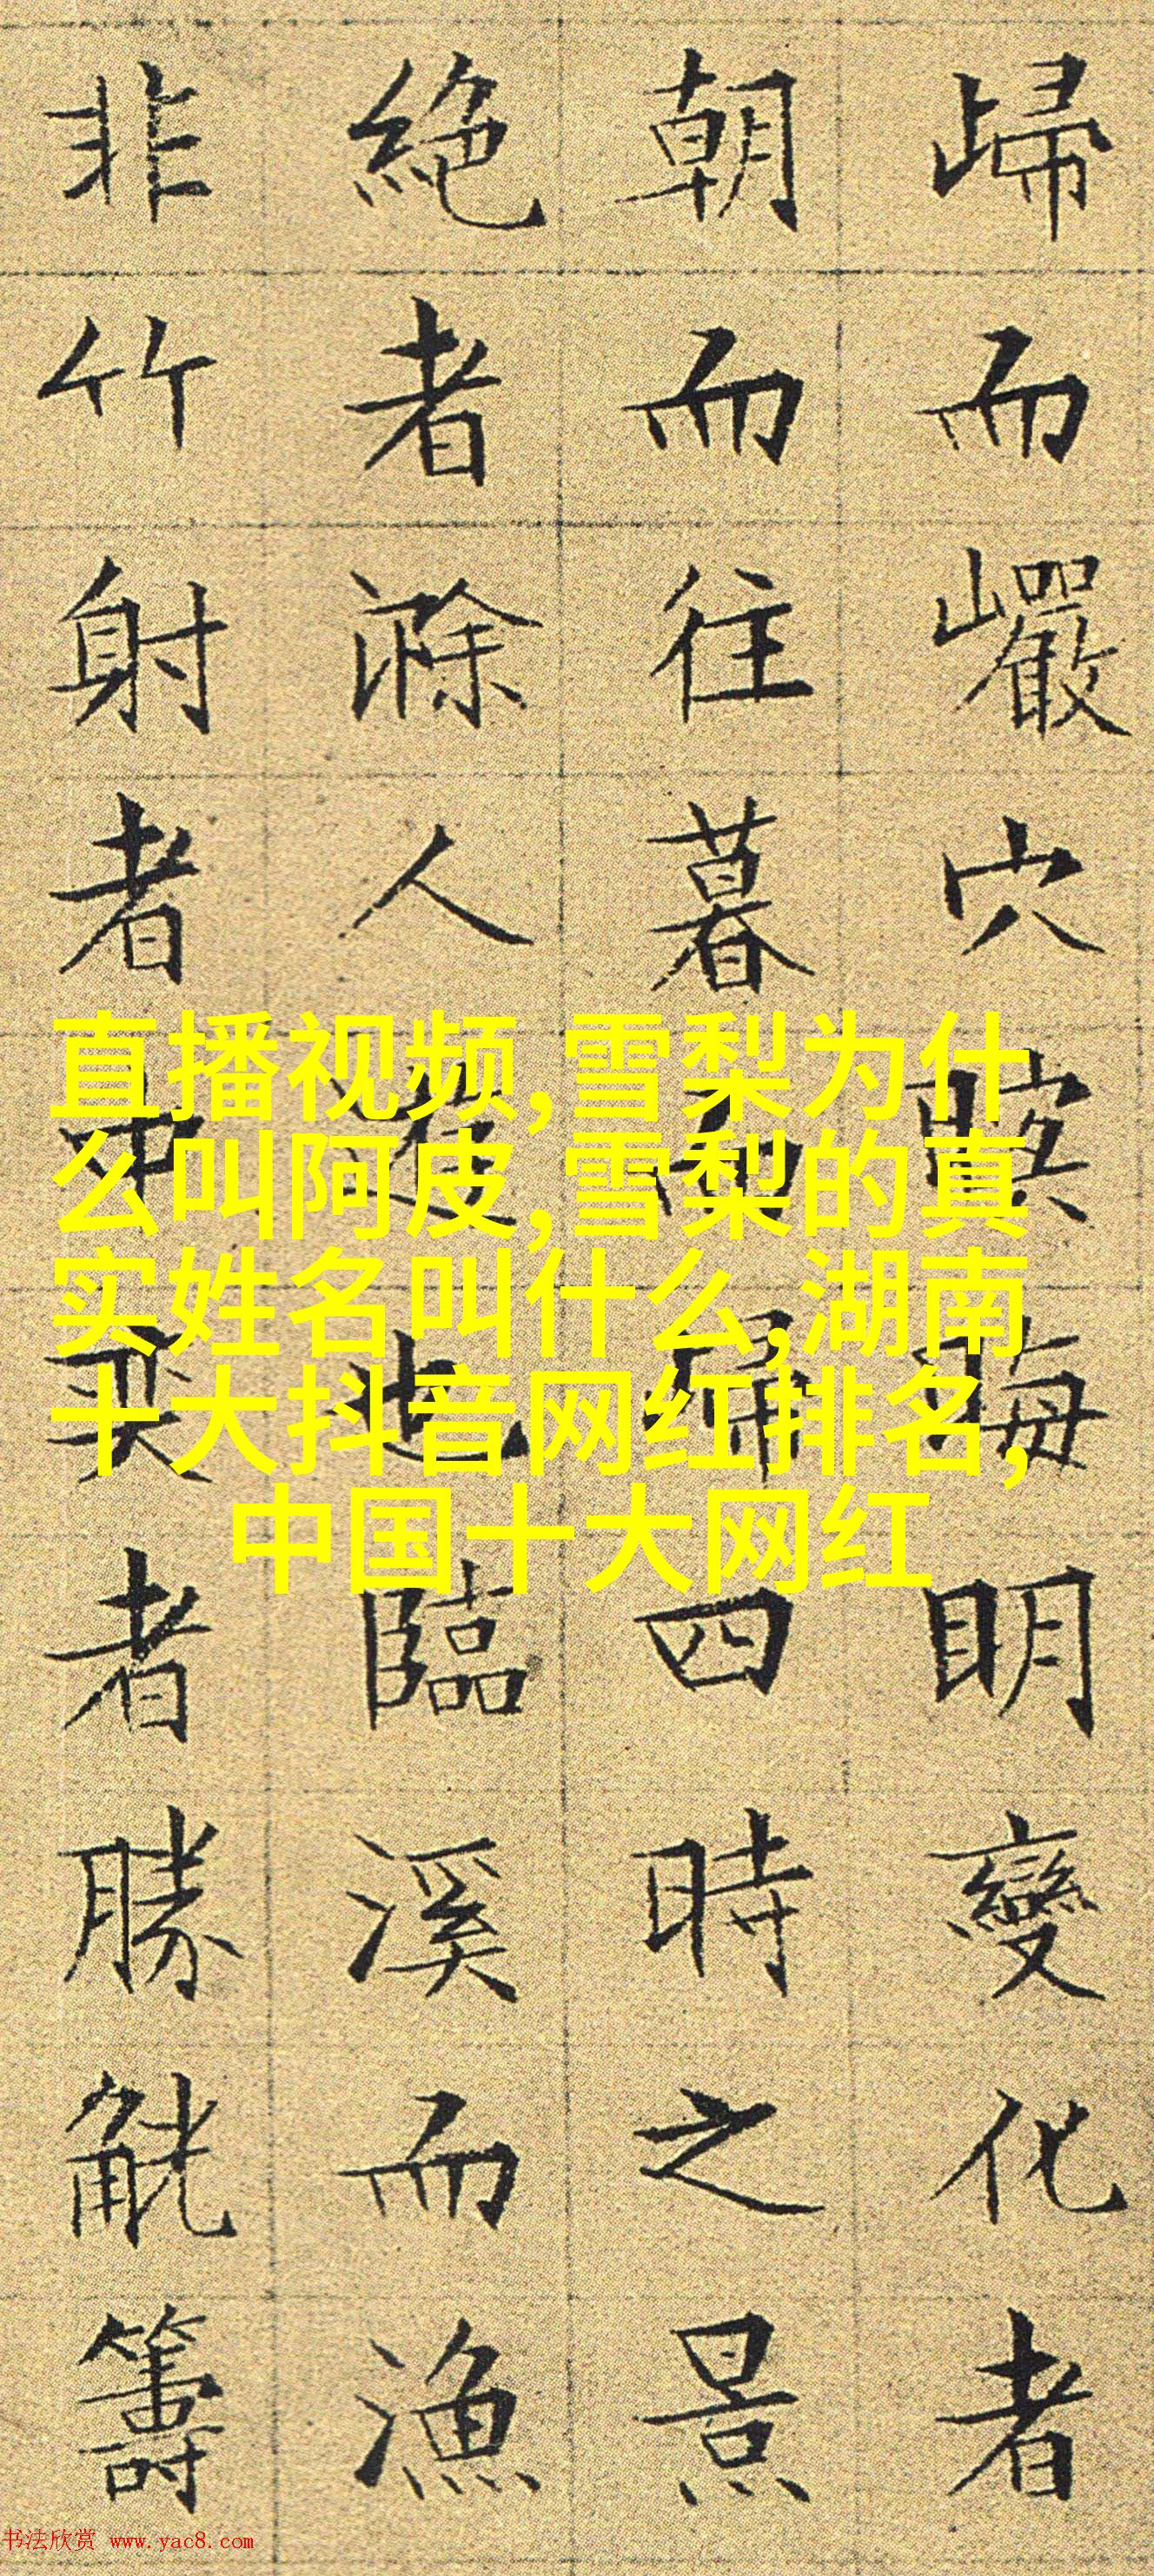 歸而巖穴暝晦明變化者
朝而往暮而歸四時之景
絶者滁人遊也臨溪而漁
非竹射者中奕者勝觥籌
直播视频,雪梨为什
么叫阿皮,雪梨的真
实姓名叫什么,湖南
十大抖音网红排名,
中国十大网红
书法欣赏 www.yac8.com